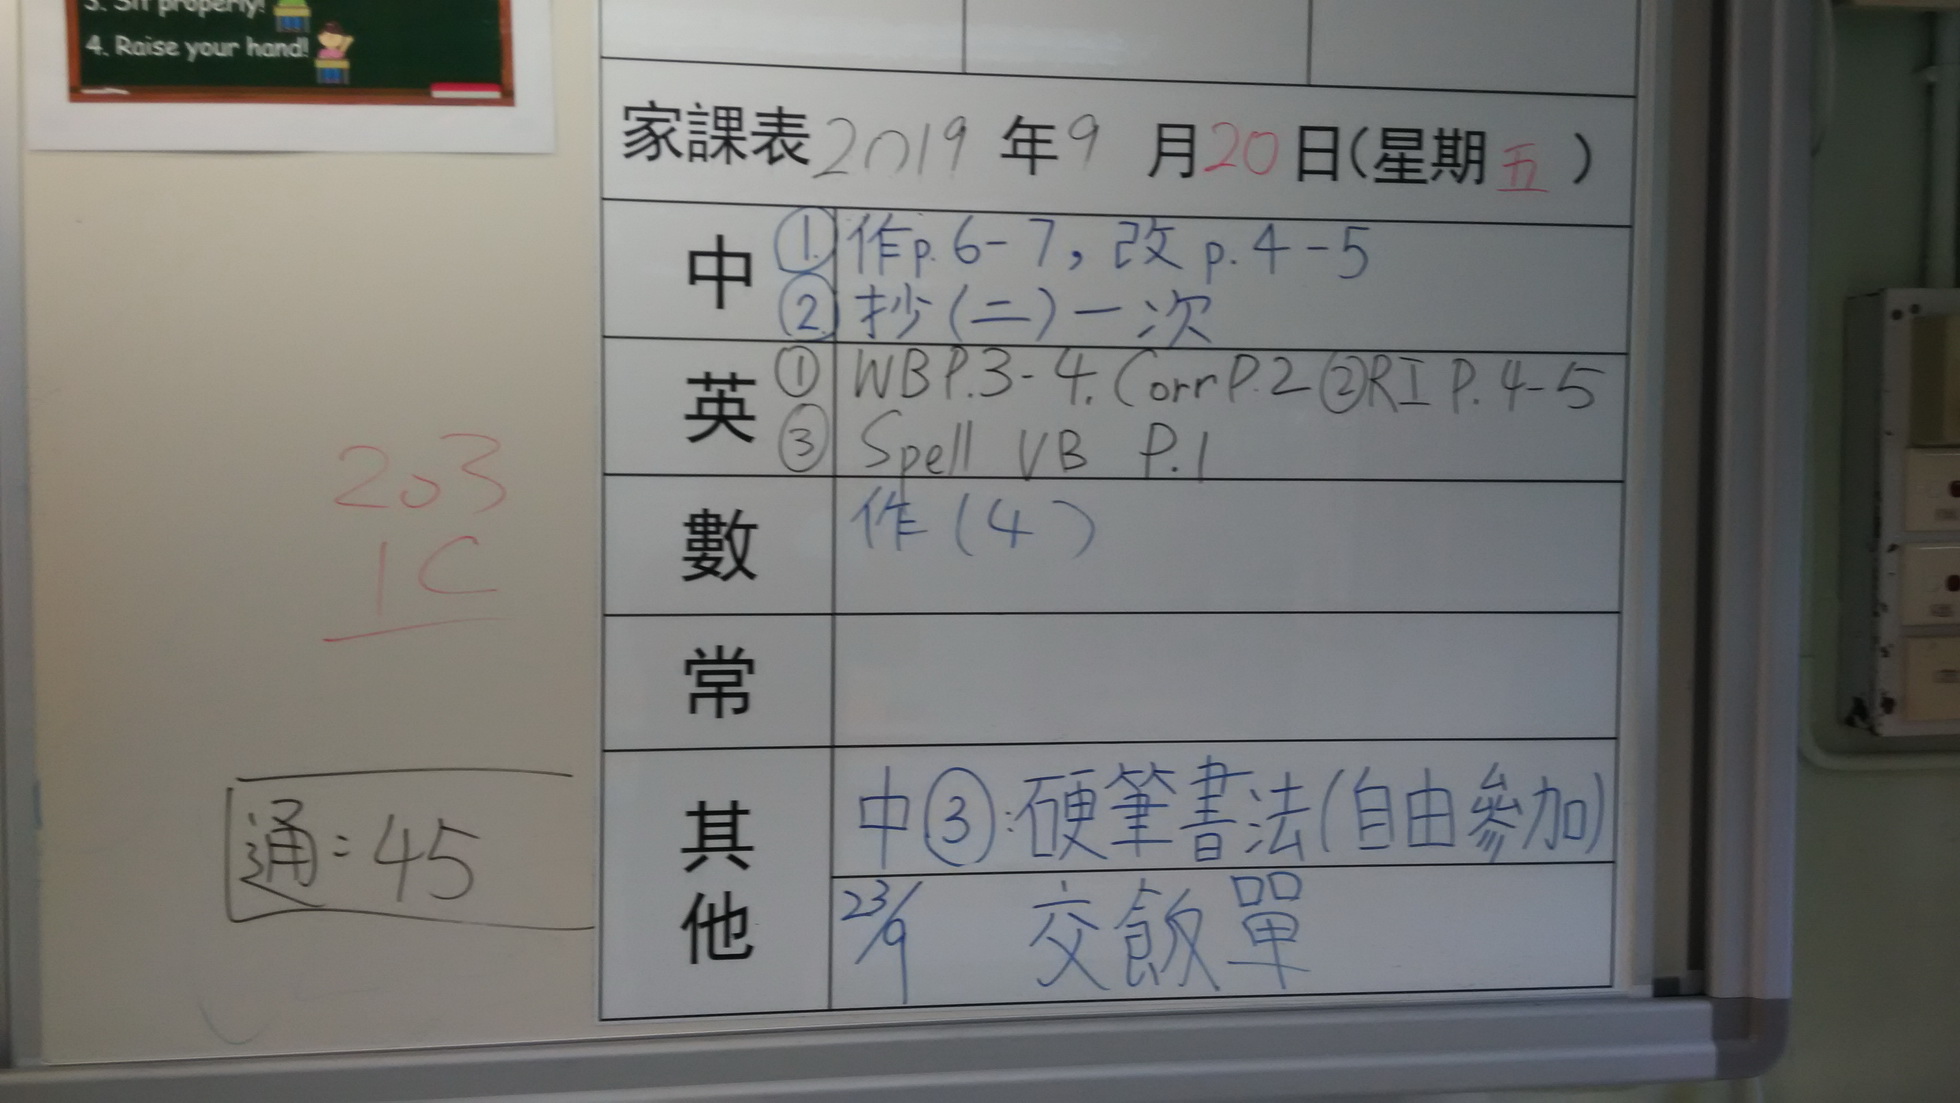 3. Sit properly!
4. Raise your hand!
家課表 2019 年 9 月 20 日(星期五)
中 ① 作p.6-7, 改p.4-5
② 抄(二)一次
英 ① WB P.3-4. Corr P.2 ② RI P.4-5
③ Spell VB P.1
數 作(4)
常
其他 中③:硬筆書法(自由參加)
23/9 交飯單
203
1C
通:45